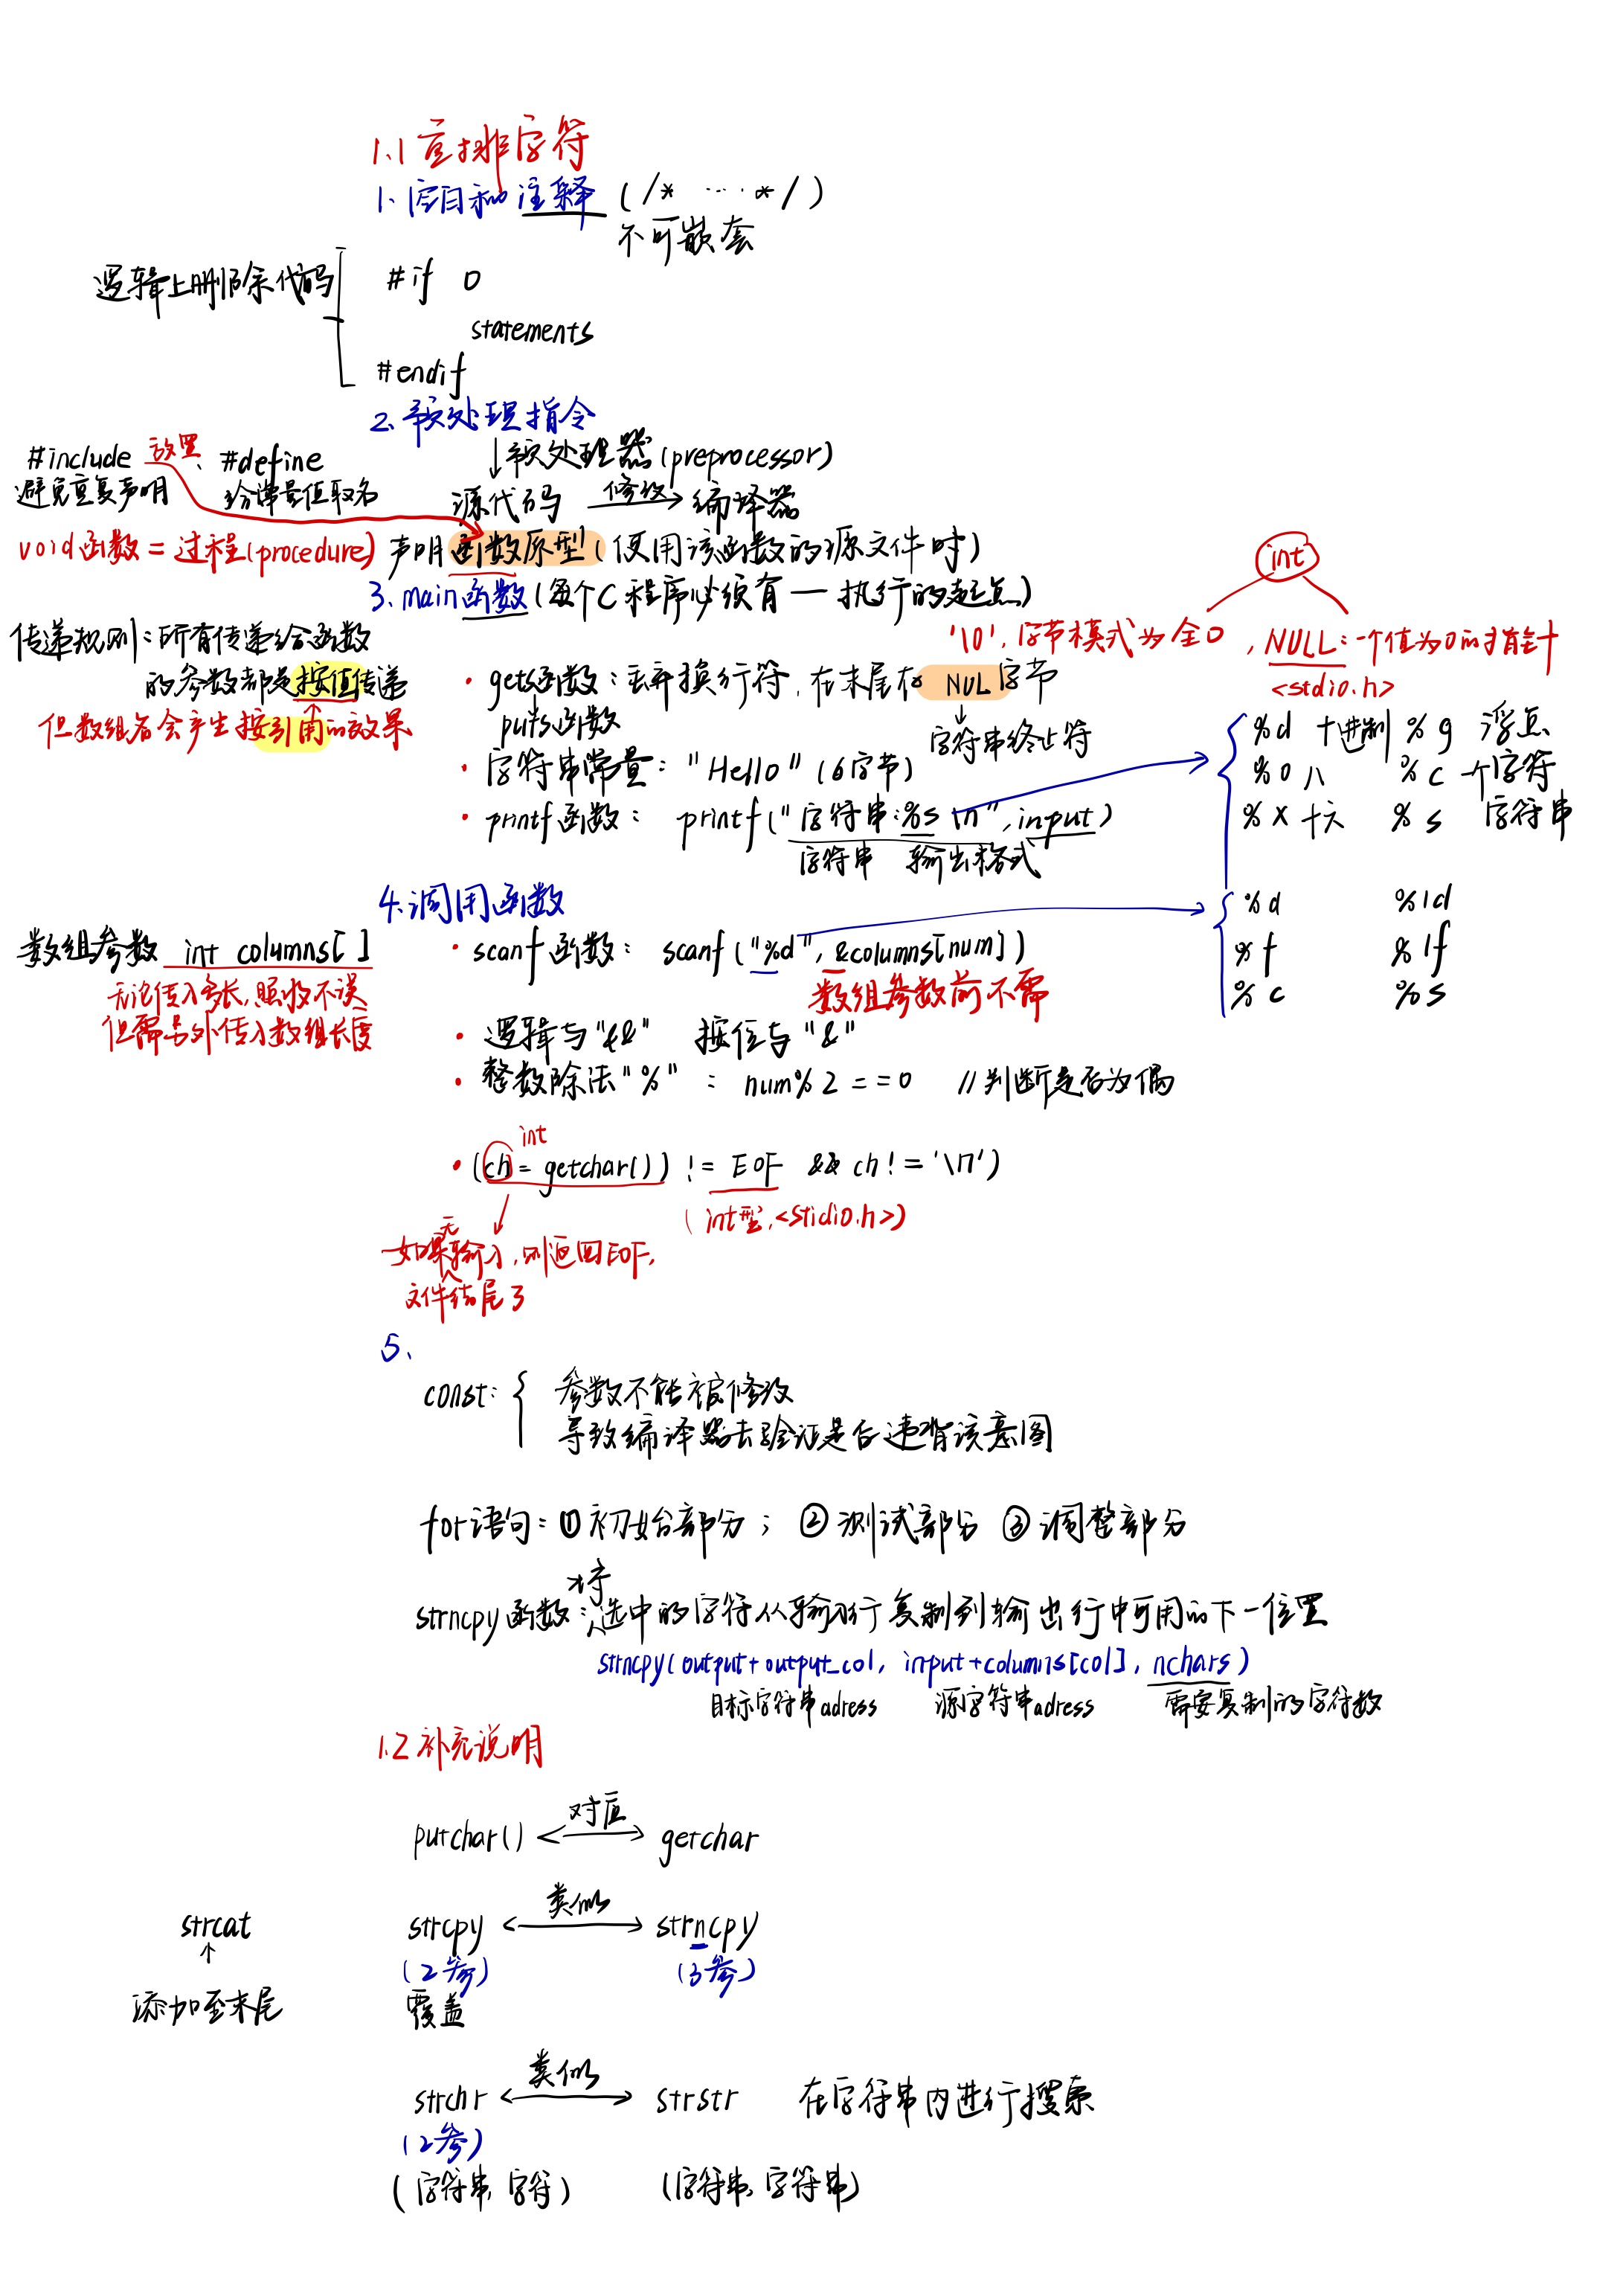 1.1 重排字符
1. 空白和注释 (/* ... */)
不可嵌套
逻辑上删除代码
#if 0
statements
#endif
2. 预处理指令
↓预处理器(preprocessor)
#include 放置、#define
避免重复声明 给常量值取名
源代码 修改→ 编译器
void函数=过程(procedure) 声明函数原型(使用该函数的源文件时)
int
3. main函数(每个C程序必须有一执行的起点)
传递规则:所有传递给函数
的参数都是按值传递
但数组名会产生按引用的效果
'\0',字节模式为全0,NULL:一个值为0的指针
<stdio.h>
• gets函数:丢弃换行符,在末尾存NUL字节
puts函数
字符串终止符
• 字符串常量:"Hello"(6字节)
• printf函数: printf("字符串:%s \n",input)
字符串 输出格式
%d 十进制 %g 浮点
%o 八 %c 一个字符
%x 十六 %s 字符串
4. 调用函数
数组参数 int columns[]
无论传入多长,照收不误
但需另外传入数组长度
• scanf函数: scanf("%d",&columns[num])
数组参数前不需
%d %ld
%f %lf
%c %s
• 逻辑与"&&" 按位与"&"
• 整数除法"%" : num%2==0 //判断是否为偶
int
• (ch=getchar()) != EOF && ch!='\n')
(int型,<stidio.h>)
如果无输入,则返回EOF,
文件结尾了
5、
const: { 参数不能被修改
导致编译器去验证是否违背该意图
for语句:①初始部分; ②测试部分 ③调整部分
strncpy函数:对于选中的字符从输入行复制到输出行中可用的下一位置
strncpy(output+output_col, input+columns[col], nchars)
目标字符串adress 源字符串adress 需要复制的字符数
1.2 补充说明
putchar() <对应> getchar
strcat strcpy <类似> strncpy
↑ (2参) (3参)
添加至末尾 覆盖
strchr <类似> strstr 在字符串内进行搜索
(2参)
(字符串,字符) (字符串,字符串)